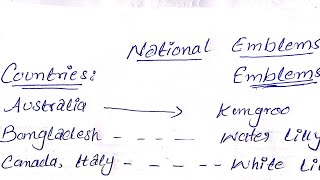 National Emblems
Countries: Emblems
Australia → Kangroo
Bangladesh - - - - Water Lilly
Canada, Italy - - - - White Li